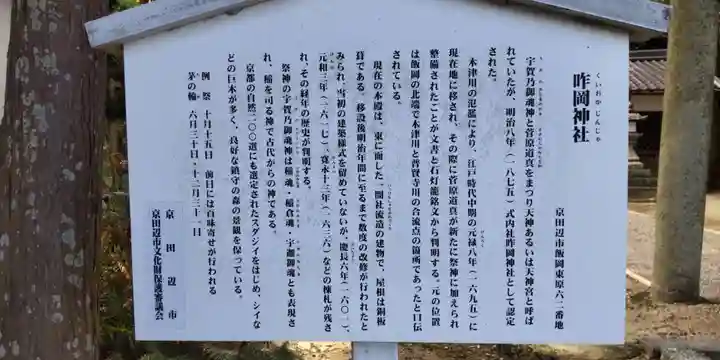 咋岡神社
くいおかじんじゃ
京田辺市飯岡東原六二番地
宇賀乃御魂神と菅原道真をまつり天神あるいは天神宮と呼ば
れていたが、明治八年（一八七五）式内社咋岡神社として認定
された。
木津川の氾濫により、江戸時代中期の元禄八年（一六九五）に
現在地に移され、その際に菅原道真が新たに祭神に加えられ
整備されたことが文書と石灯籠銘文から判明する。元の位置
は飯岡の北端で木津川と普賢寺川の合流点の箇所であったと口伝
されている。
現在の本殿は、東に面した一間社流造の建物で、屋根は銅板
葺である。移設後明治年間に至るまで数度の改修が行われたと
みられ、当初の建築様式を留めていないが、慶長六年（一六〇一）、
元和三年（一六一七）、寛永十三年（一六三六）などの棟札が残さ
れ、その経年の歴史が判明する。
祭神の宇賀乃御魂神は稲魂・稲倉魂・宇迦御魂とも表現さ
れ、稲を司る神で古代からの神である。
京都の自然二〇〇選にも選定されたスダジイをはじめ、シイな
どの巨木が多く、良好な鎮守の森の景観を保っている。
例祭 十月十五日 前日には百味寄せが行われる
茅の輪 六月三十日・十二月三十一日
京田辺市
京田辺市文化財保護審議会